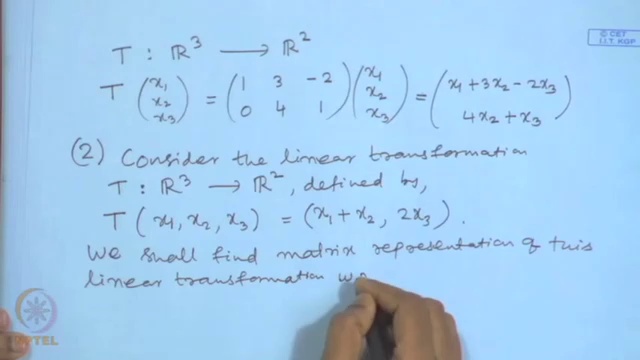 © CET
I.I.T. KGP
T : ℝ³ ⟶ ℝ²
T (x₁ x₂ x₃) = (1 3 -2 / 0 4 1) (x₁ x₂ x₃) = (x₁ + 3x₂ - 2x₃ / 4x₂ + x₃)
(2) Consider the linear transformation
T : ℝ³ ⟶ ℝ², defined by,
T (x₁, x₂, x₃) = (x₁ + x₂, 2x₃).
We shall find matrix representation of this
linear transformation
NPTEL